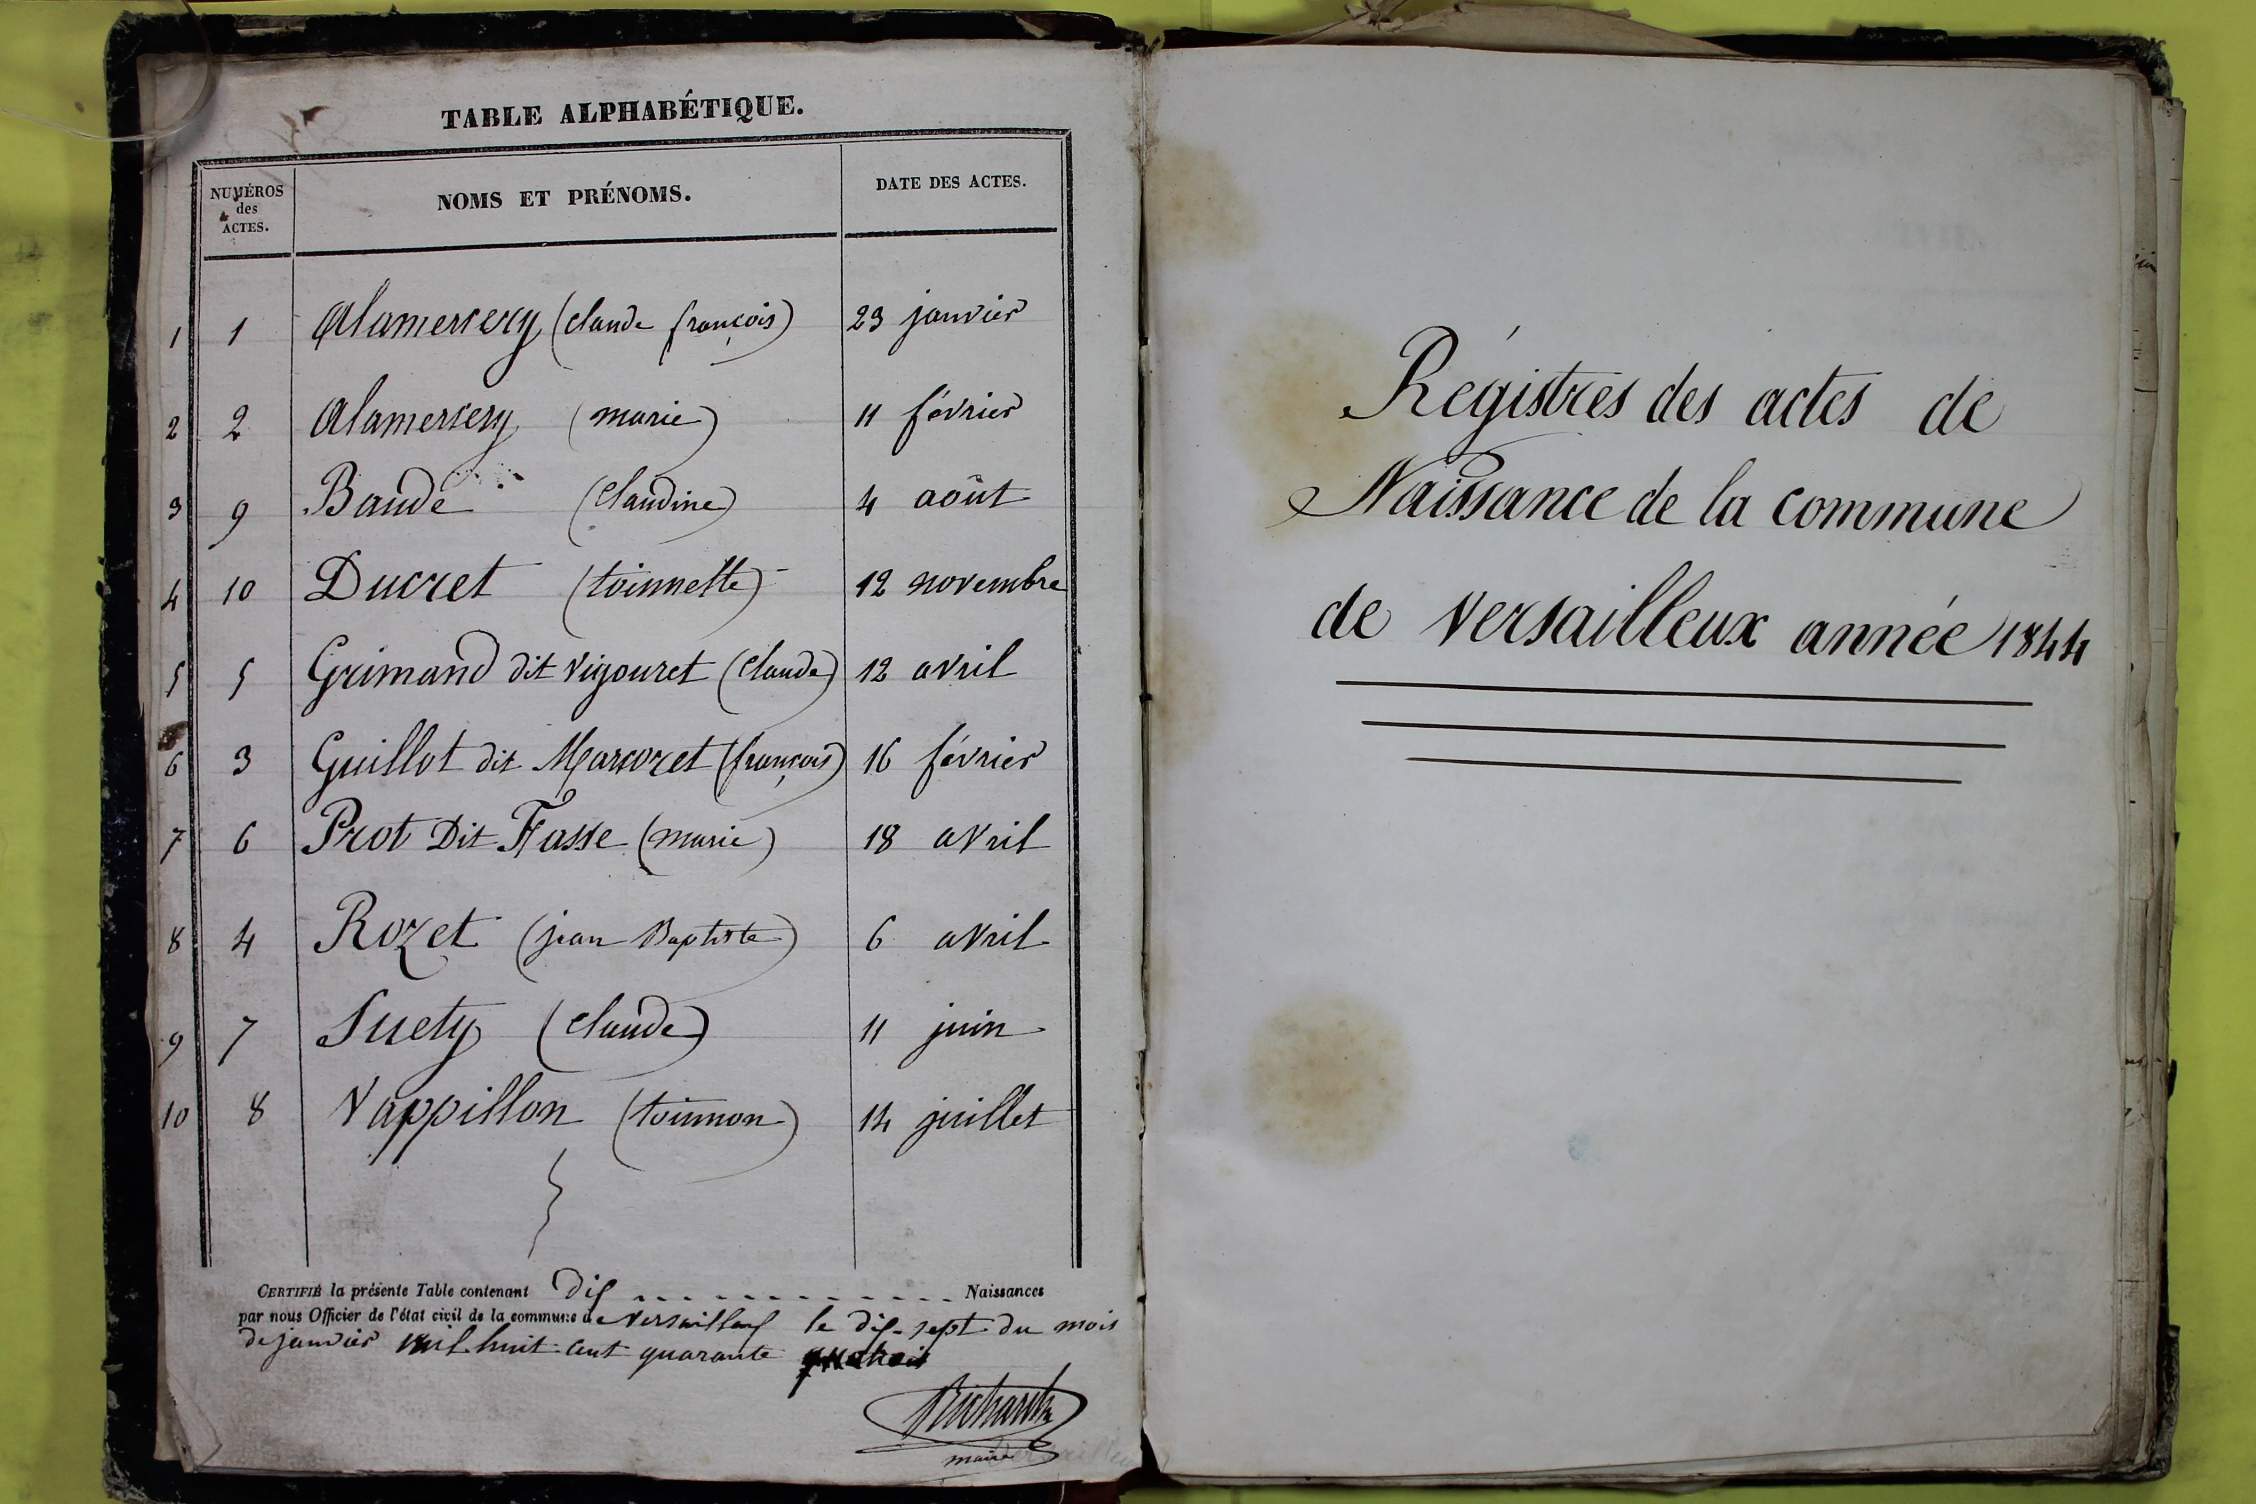 TABLE ALPHABÉTIQUE.
NUMÉROS des ACTES.
NOMS ET PRÉNOMS.
DATE DES ACTES.
1 1 Alamercery (claude françois) 23 janvier
2 2 Alamercery (marie) 11 février
3 9 Baude (Claudine) 4 août
4 10 Ducret (toinnette) 12 novembre
5 5 Grimand dit vigouret (Claude) 12 avril
6 3 Guillot dit Marcoret (françois) 16 février
7 6 Prot Dit Fasse (marie) 18 avril
8 4 Rozet (jean Baptiste) 6 avril
9 7 Suety (Claude) 11 juin
10 8 Vappillon (toinnon) 14 juillet
CERTIFIÉ la présente Table contenant Dix Naissances
par nous Officier de l'état civil de la commune de Versailleux le dix-sept du mois
de janvier mil huit-cent quarante
maire
Régistres des actes de
Naissance de la commune
de Versailleux année 1844